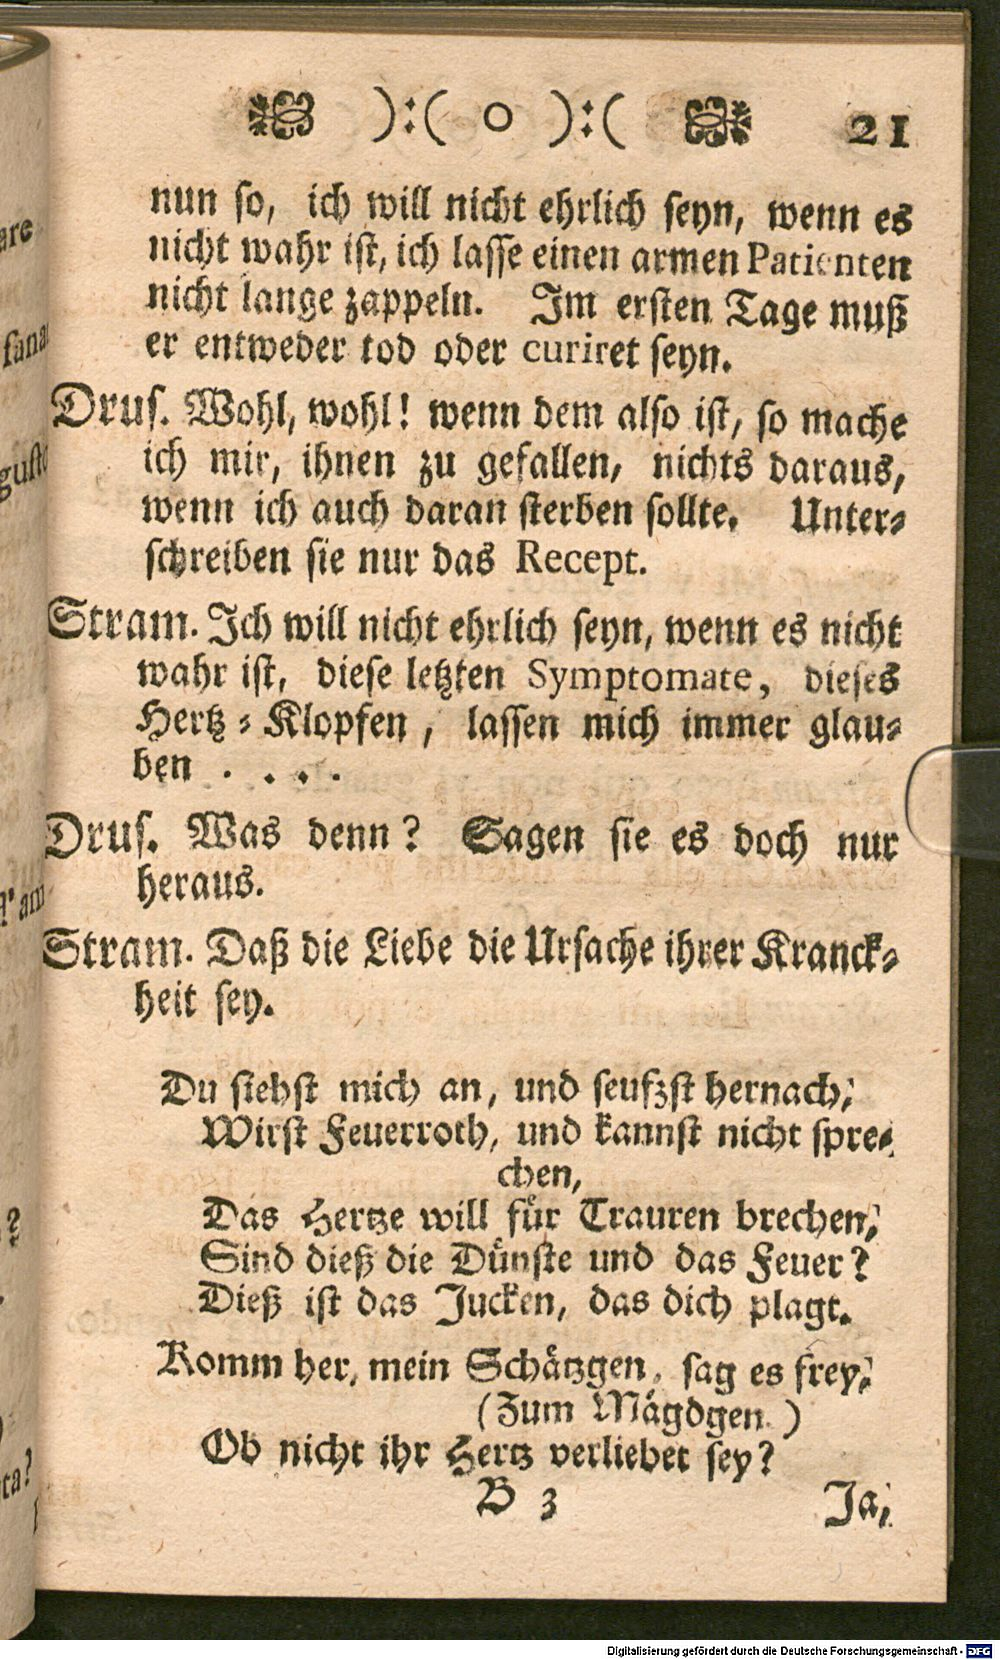 ):( o ):( 21
nun so, ich will nicht ehrlich seyn, wenn es
nicht wahr ist, ich lasse einen armen Patienten
nicht lange zappeln. Im ersten Tage muß
er entweder tod oder curiret seyn.
Drus. Wohl, wohl! wenn dem also ist, so mache
ich mir, ihnen zu gefallen, nichts daraus,
wenn ich auch daran sterben sollte. Unter-
schreiben sie nur das Recept.
Stram. Ich will nicht ehrlich seyn, wenn es nicht
wahr ist, diese letzten Symptomate, dieses
Hertz-Klopfen, lassen mich immer glau-
ben . . . .
Drus. Was denn? Sagen sie es doch nur
heraus.
Stram. Daß die Liebe die Ursache ihrer Kranck-
heit sey.
Du siehst mich an, und seufzst hernach,
Wirst Feuerroth, und kannst nicht spre-
chen,
Das Hertze will für Trauren brechen,
Sind dieß die Dünste und das Feuer?
Dieß ist das Jucken, das dich plagt.
Komm her, mein Schätzgen, sag es frey,
(Zum Mägdgen.)
Ob nicht ihr Hertz verliebet sey?
B 3 Ja,
Digitalisierung gefördert durch die Deutsche Forschungsgemeinschaft - DFG